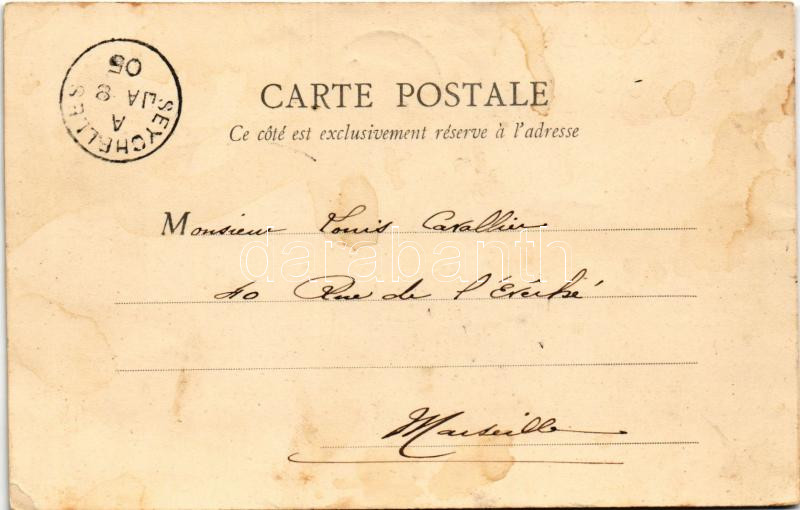 SEYCHELLES
A
JA 8
05
CARTE POSTALE
Ce côté est exclusivement réservé à l'adresse
Monsieur Louis Cavallier
darabanth
40 Rue de l'Évêché
Marseille